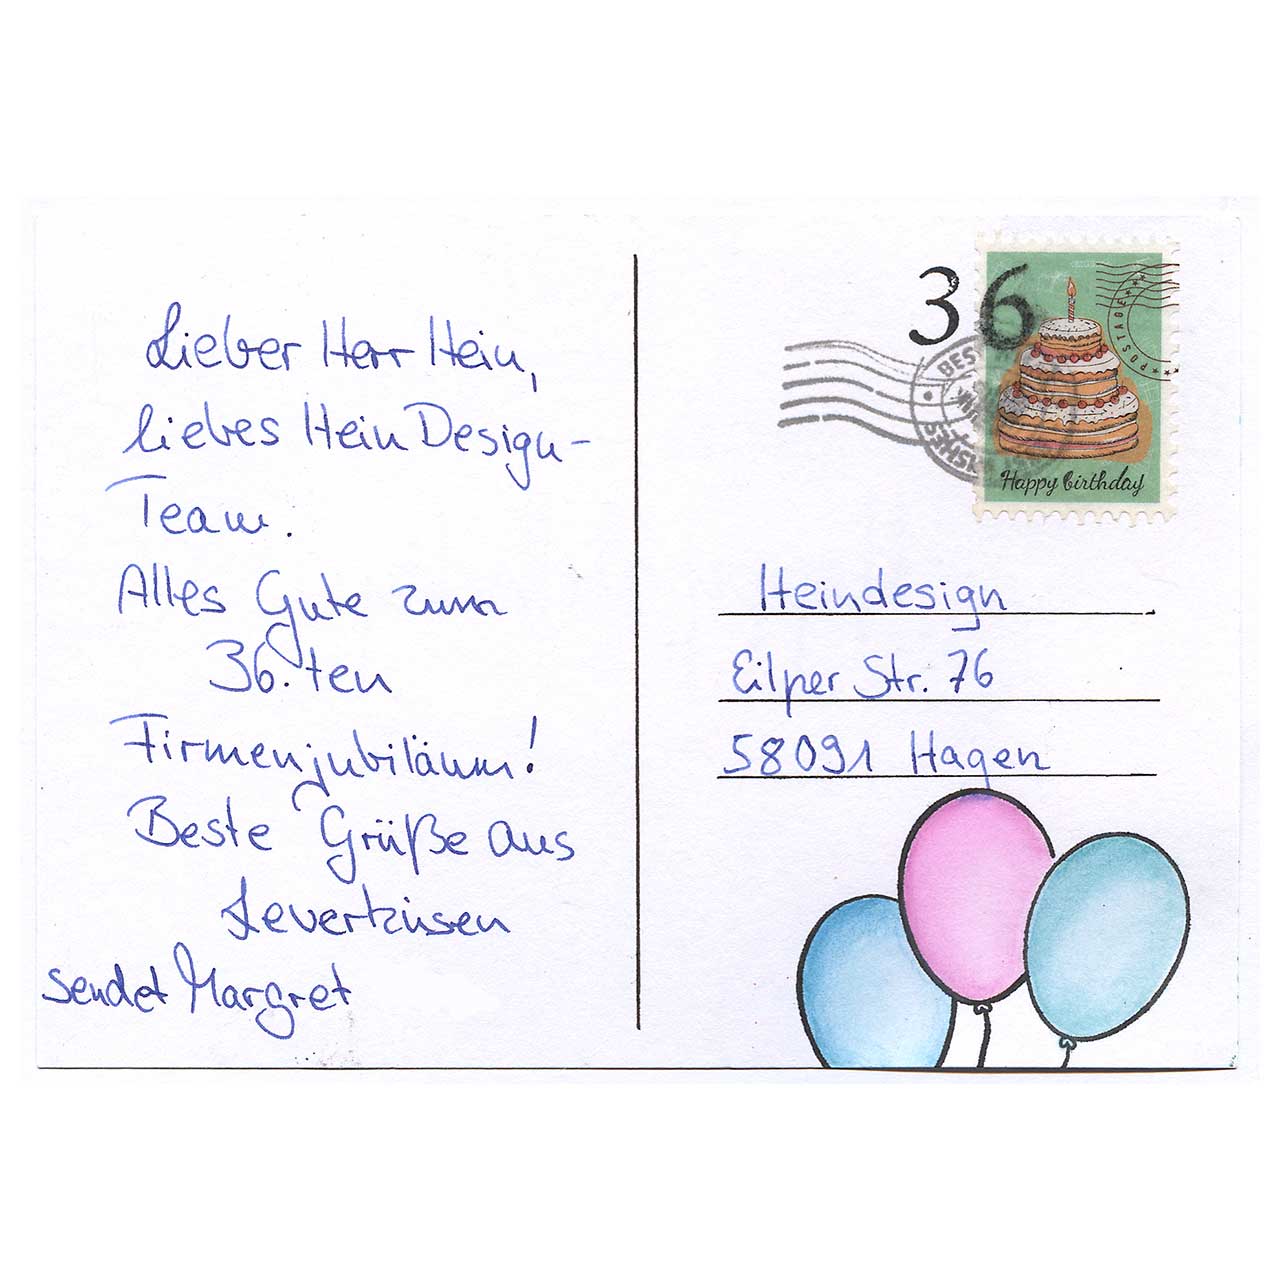 Lieber Herr Hein,
liebes Hein Design-
Team.
Alles Gute zum
36.ten
Firmenjubiläum!
Beste Grüße aus
Leverkusen
sendet Margret
36
BEST
WISHES
POSTAGE
Happy birthday
Heindesign
Eilper Str. 76
58091 Hagen